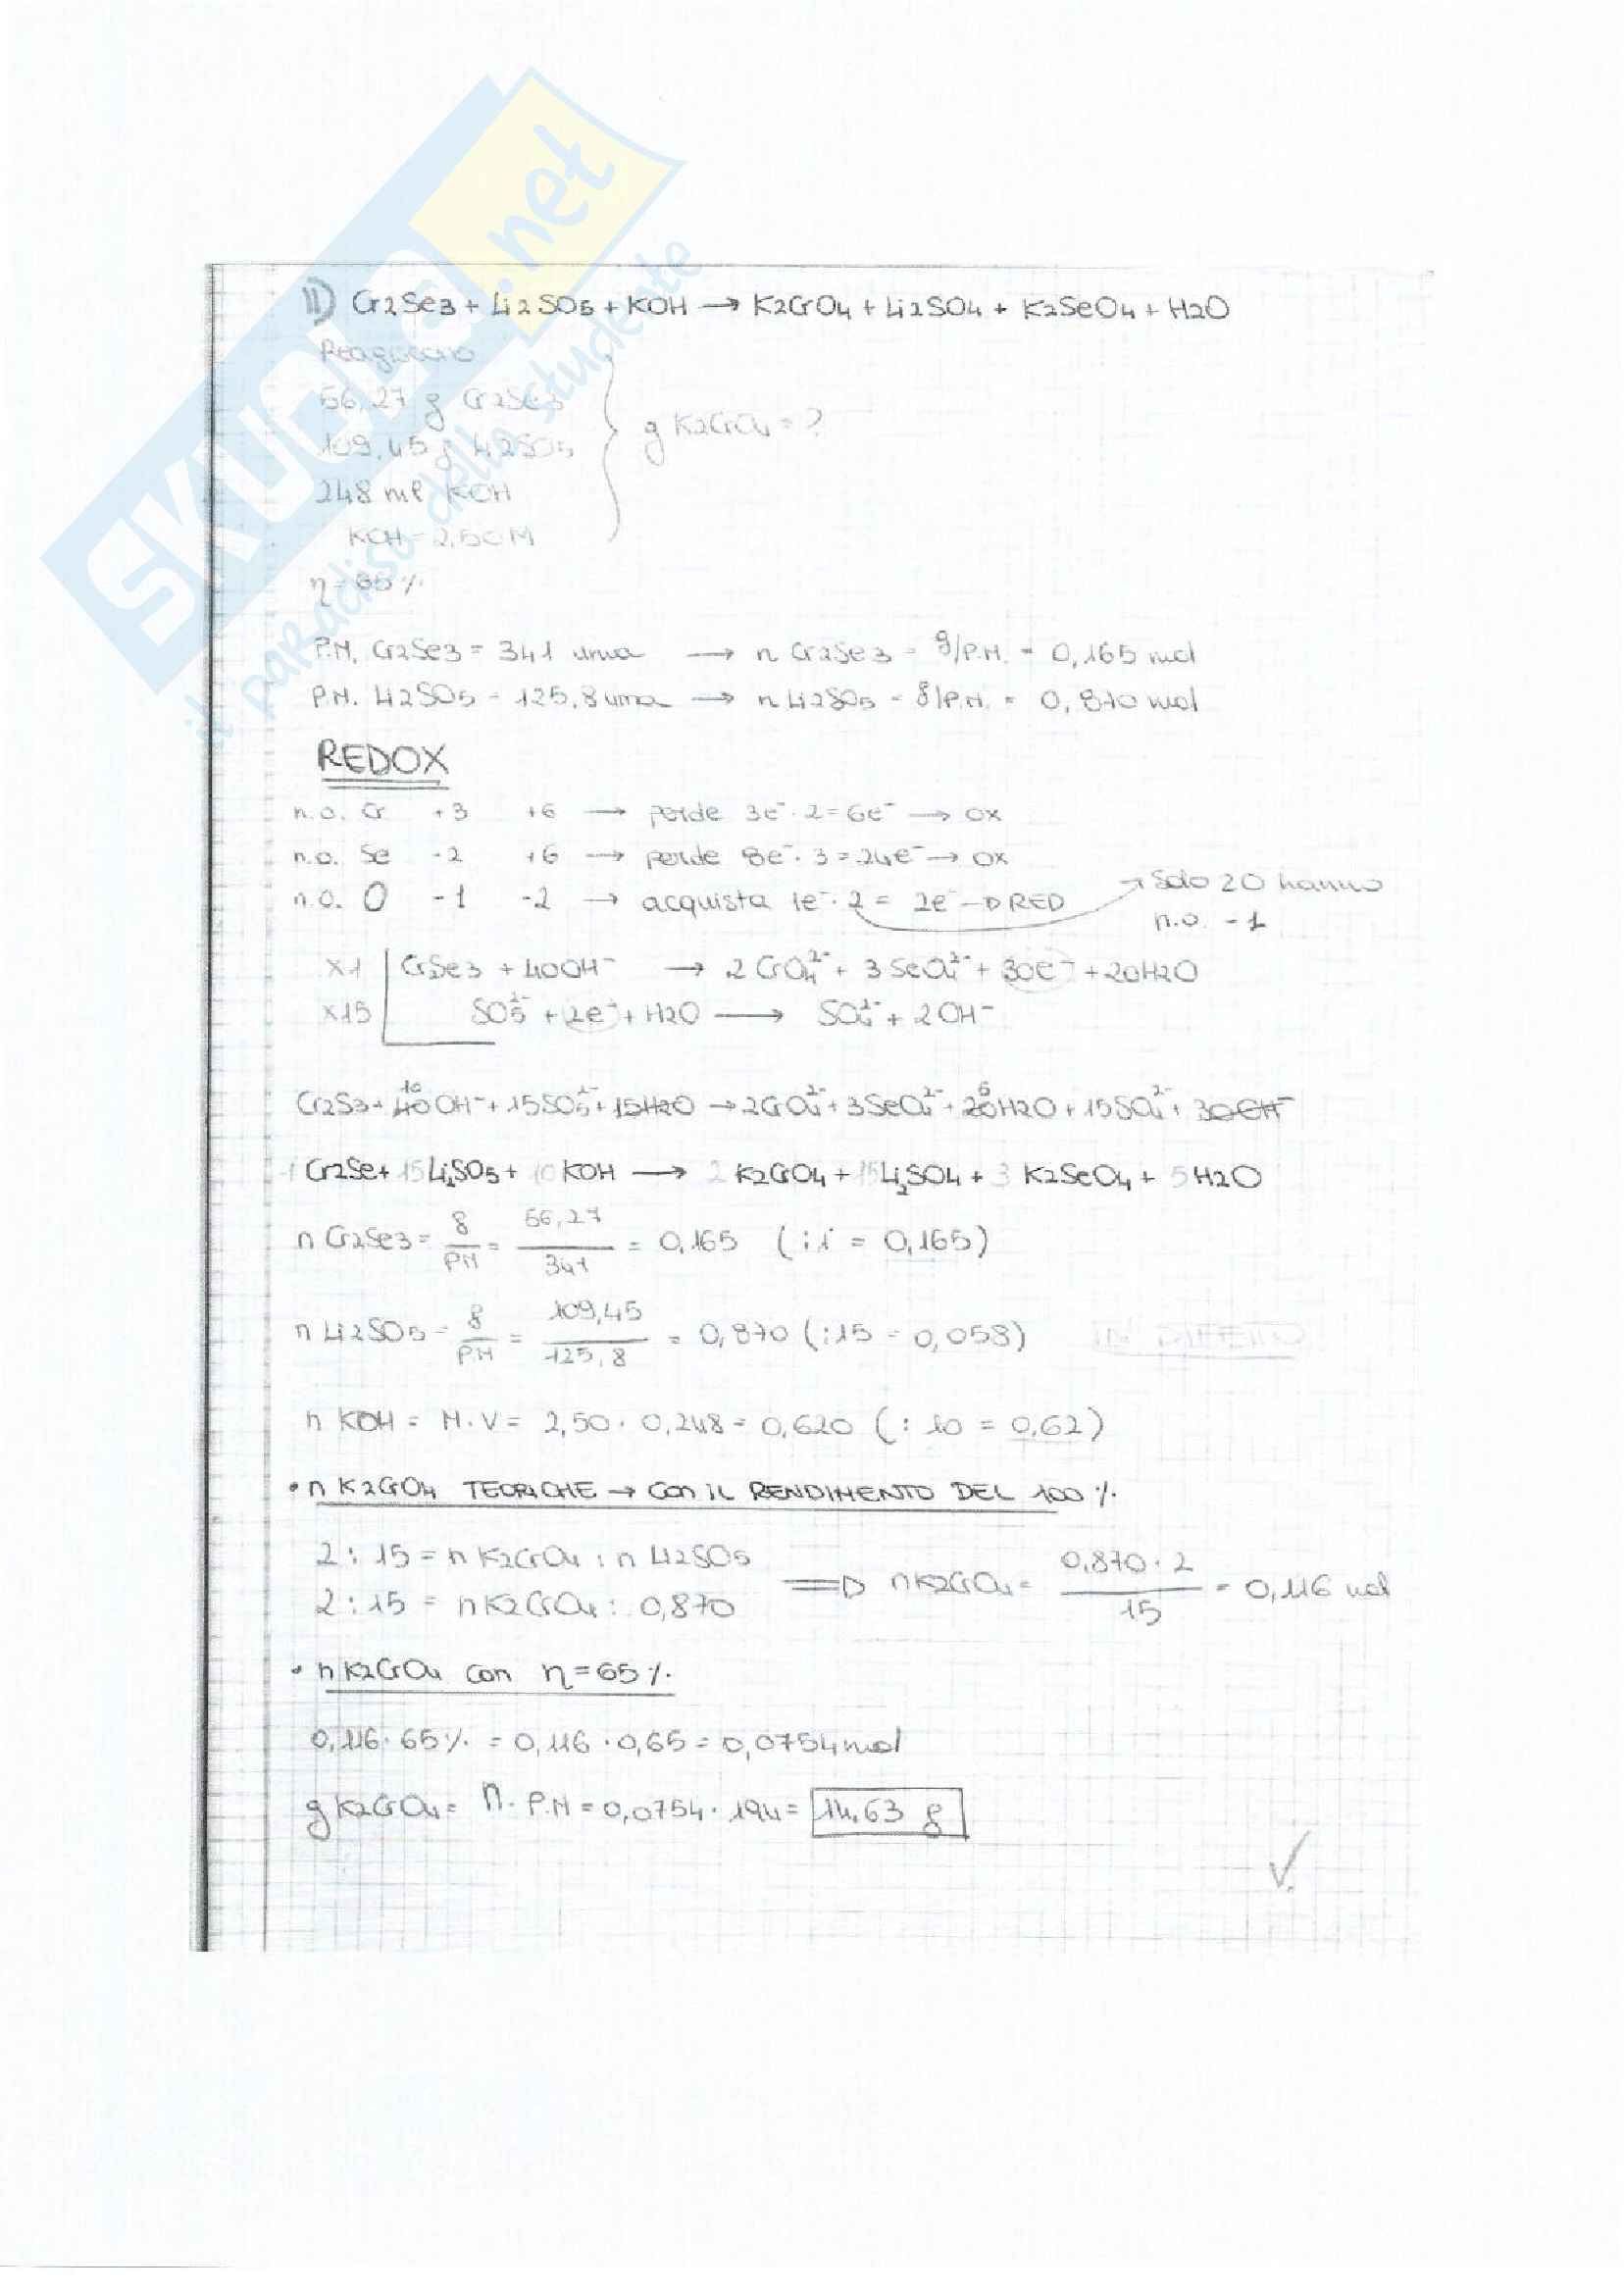 SKUOLA.net
il paradiso dello studente
11) Cr2Se3 + Li2SO5 + KOH → K2CrO4 + Li2SO4 + K2SeO4 + H2O
Reagiscono
56,27 g Cr2Se3
109,45 g Li2SO5
g K2CrO4 = ?
248 ml KOH
KOH = 2,50 M
η = 65 %
P.M. Cr2Se3 = 341 uma → n Cr2Se3 = g/P.M. = 0,165 mol
P.M. Li2SO5 = 125,8 uma → n Li2SO5 = g/P.M. = 0,870 mol
REDOX
n.o. Cr +3 +6 → perde 3e⁻ · 2 = 6e⁻ → OX
n.o. Se -2 +6 → perde 8e⁻ · 3 = 24e⁻ → OX
n.o. O -1 -2 → acquista 1e⁻ · 2 = 2e⁻ → RED
→ Solo 2 O hanno
n.o. -1
x1 | CrSe3 + 40OH⁻ → 2 CrO4²⁻ + 3 SeO4²⁻ + 30e⁻ + 20H2O
x15 | SO5²⁻ + 2e⁻ + H2O → SO4²⁻ + 2OH⁻
Cr2S3 + 40 10 OH⁻ + 15SO5²⁻ + 15H2O → 2CrO4²⁻ + 3SeO4²⁻ + 20 5 H2O + 15SO4²⁻ + 30OH⁻
1 Cr2Se + 15 Li2SO5 + 10 KOH → 2 K2CrO4 + 15 Li2SO4 + 3 K2SeO4 + 5 H2O
n Cr2Se3 = g/PM = 56,27/341 = 0,165 (:1 = 0,165)
n Li2SO5 = g/PM = 109,45/125,8 = 0,870 (:15 = 0,058) IN DIFETTO
n KOH = M·V = 2,50 · 0,248 = 0,620 (: 10 = 0,62)
• n K2CrO4 TEORICHE → CON IL RENDIMENTO DEL 100 %
2 : 15 = n K2CrO4 : n Li2SO5
2 : 15 = n K2CrO4 : 0,870
⇒ n K2CrO4 = 0,870 · 2/15 = 0,116 mol
• n K2CrO4 con η = 65 %
0,116 · 65 % = 0,116 · 0,65 = 0,0754 mol
g K2CrO4 = n · P.M = 0,0754 · 194 = 14,63 g